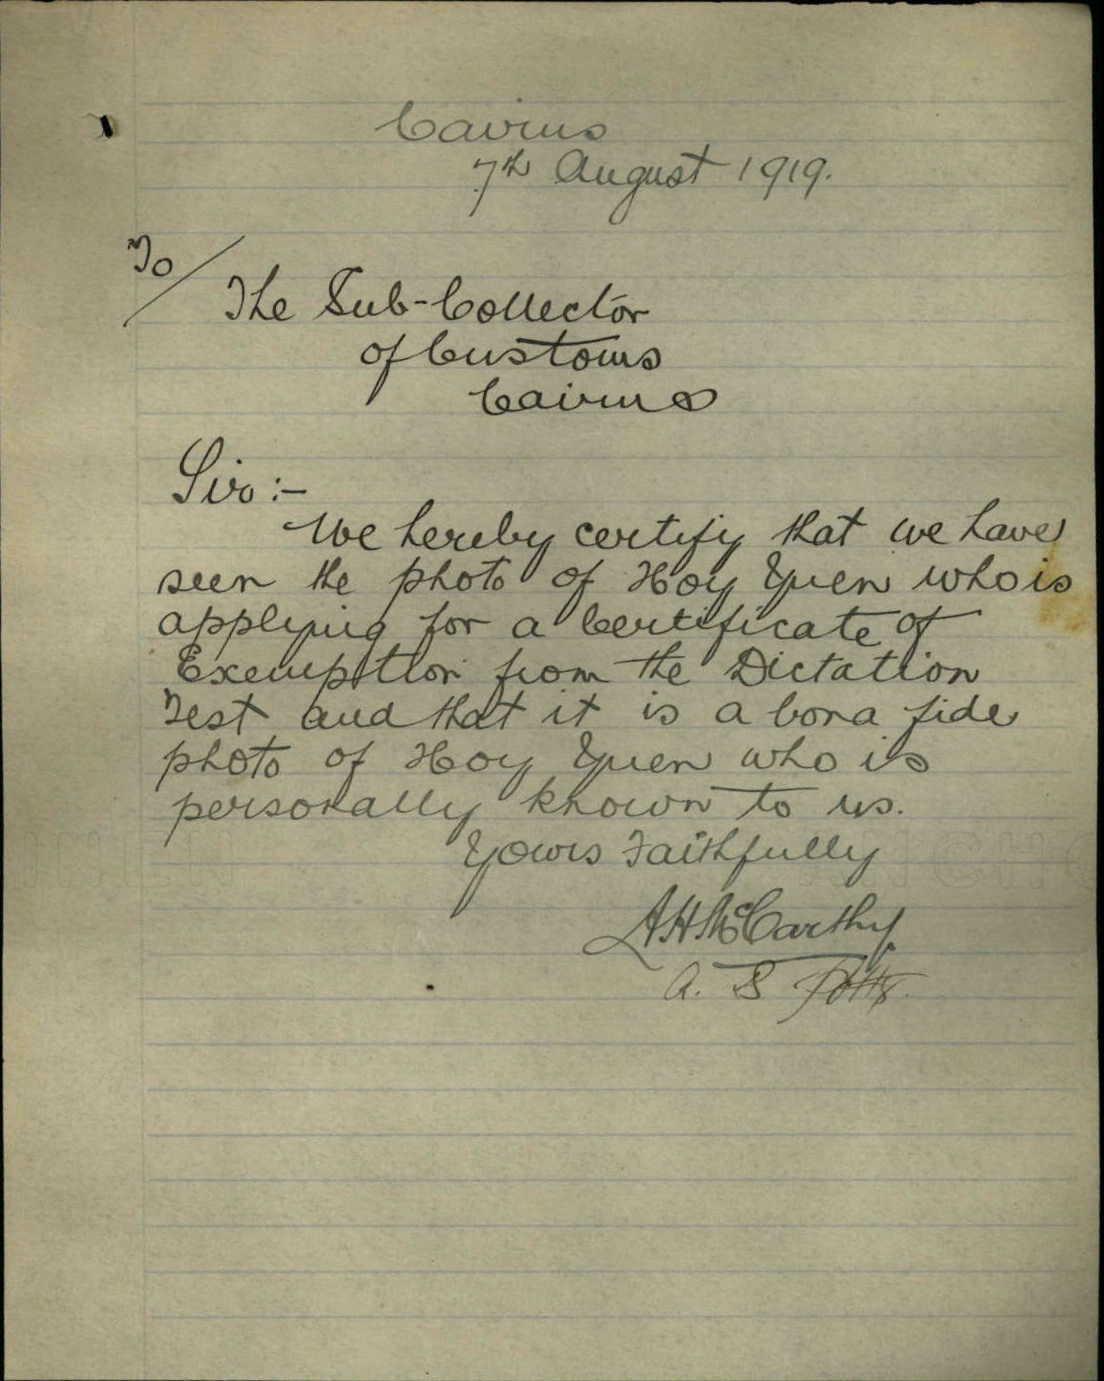 Cairns
7th August 1919.
To/
The Sub-Collector
of Customs
Cairns
Sir:-
We hereby certify that we have
seen the photo of Hoy Yuen who is
applying for a Certificate of
Exemption from the Dictation
Test and that it is a bona fide
photo of Hoy Yuen who is
personally known to us.
Yours Faithfully
AH McCarthy
A. S Potts.